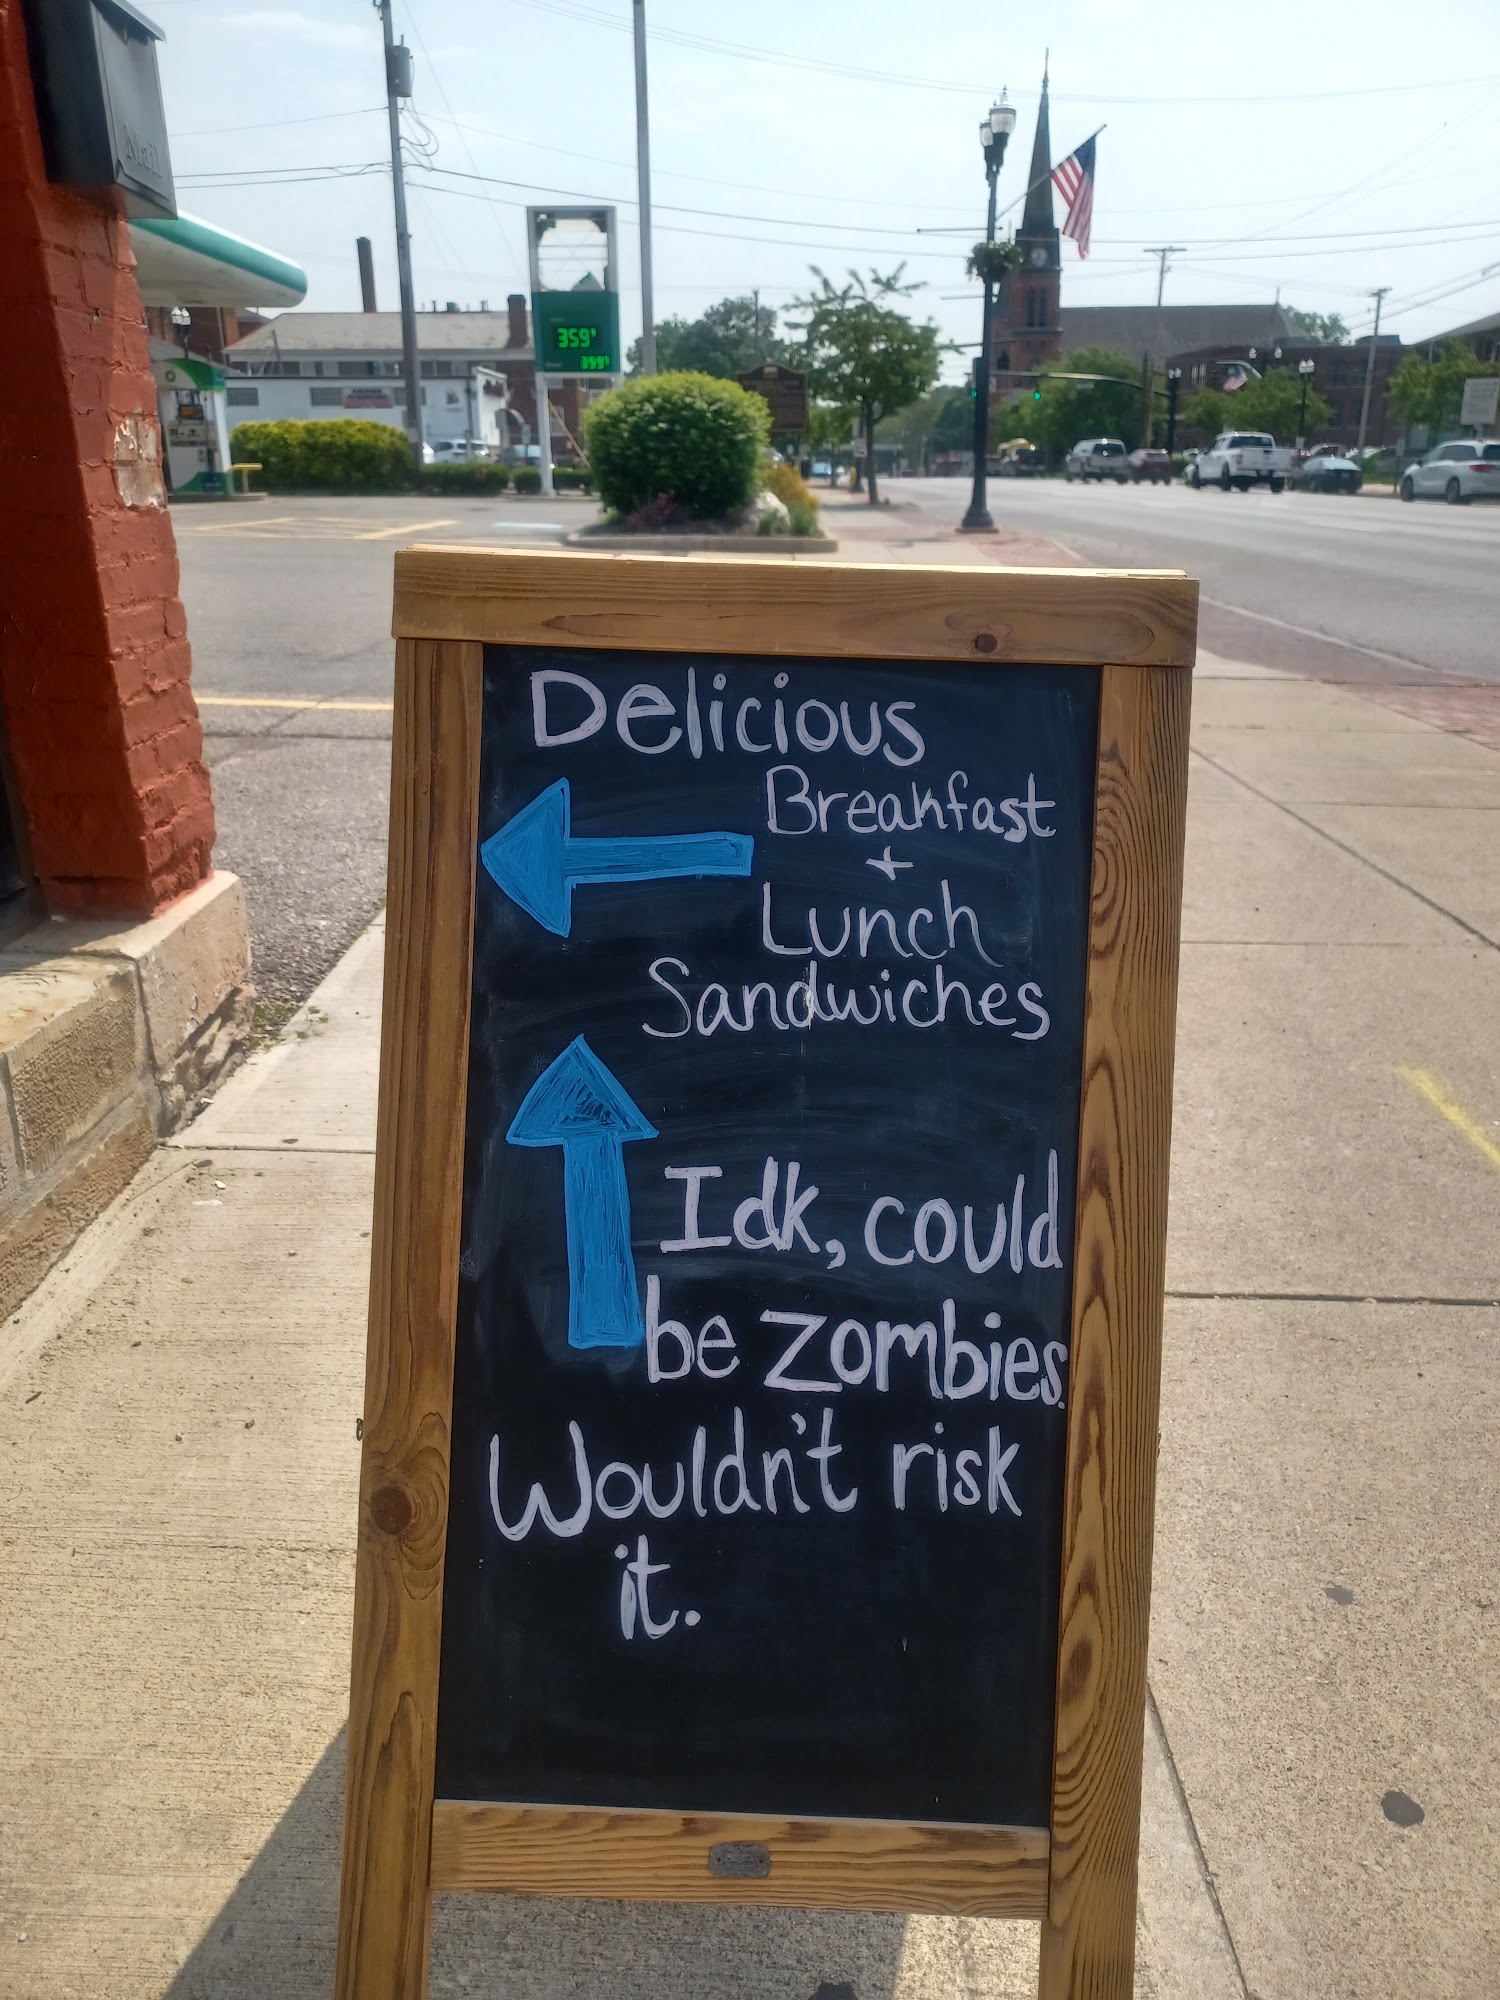 Mail
359⁹
399⁹
Delicious
Breakfast
+
Lunch
Sandwiches
Idk, could
be zombies.
Wouldn't risk
it.